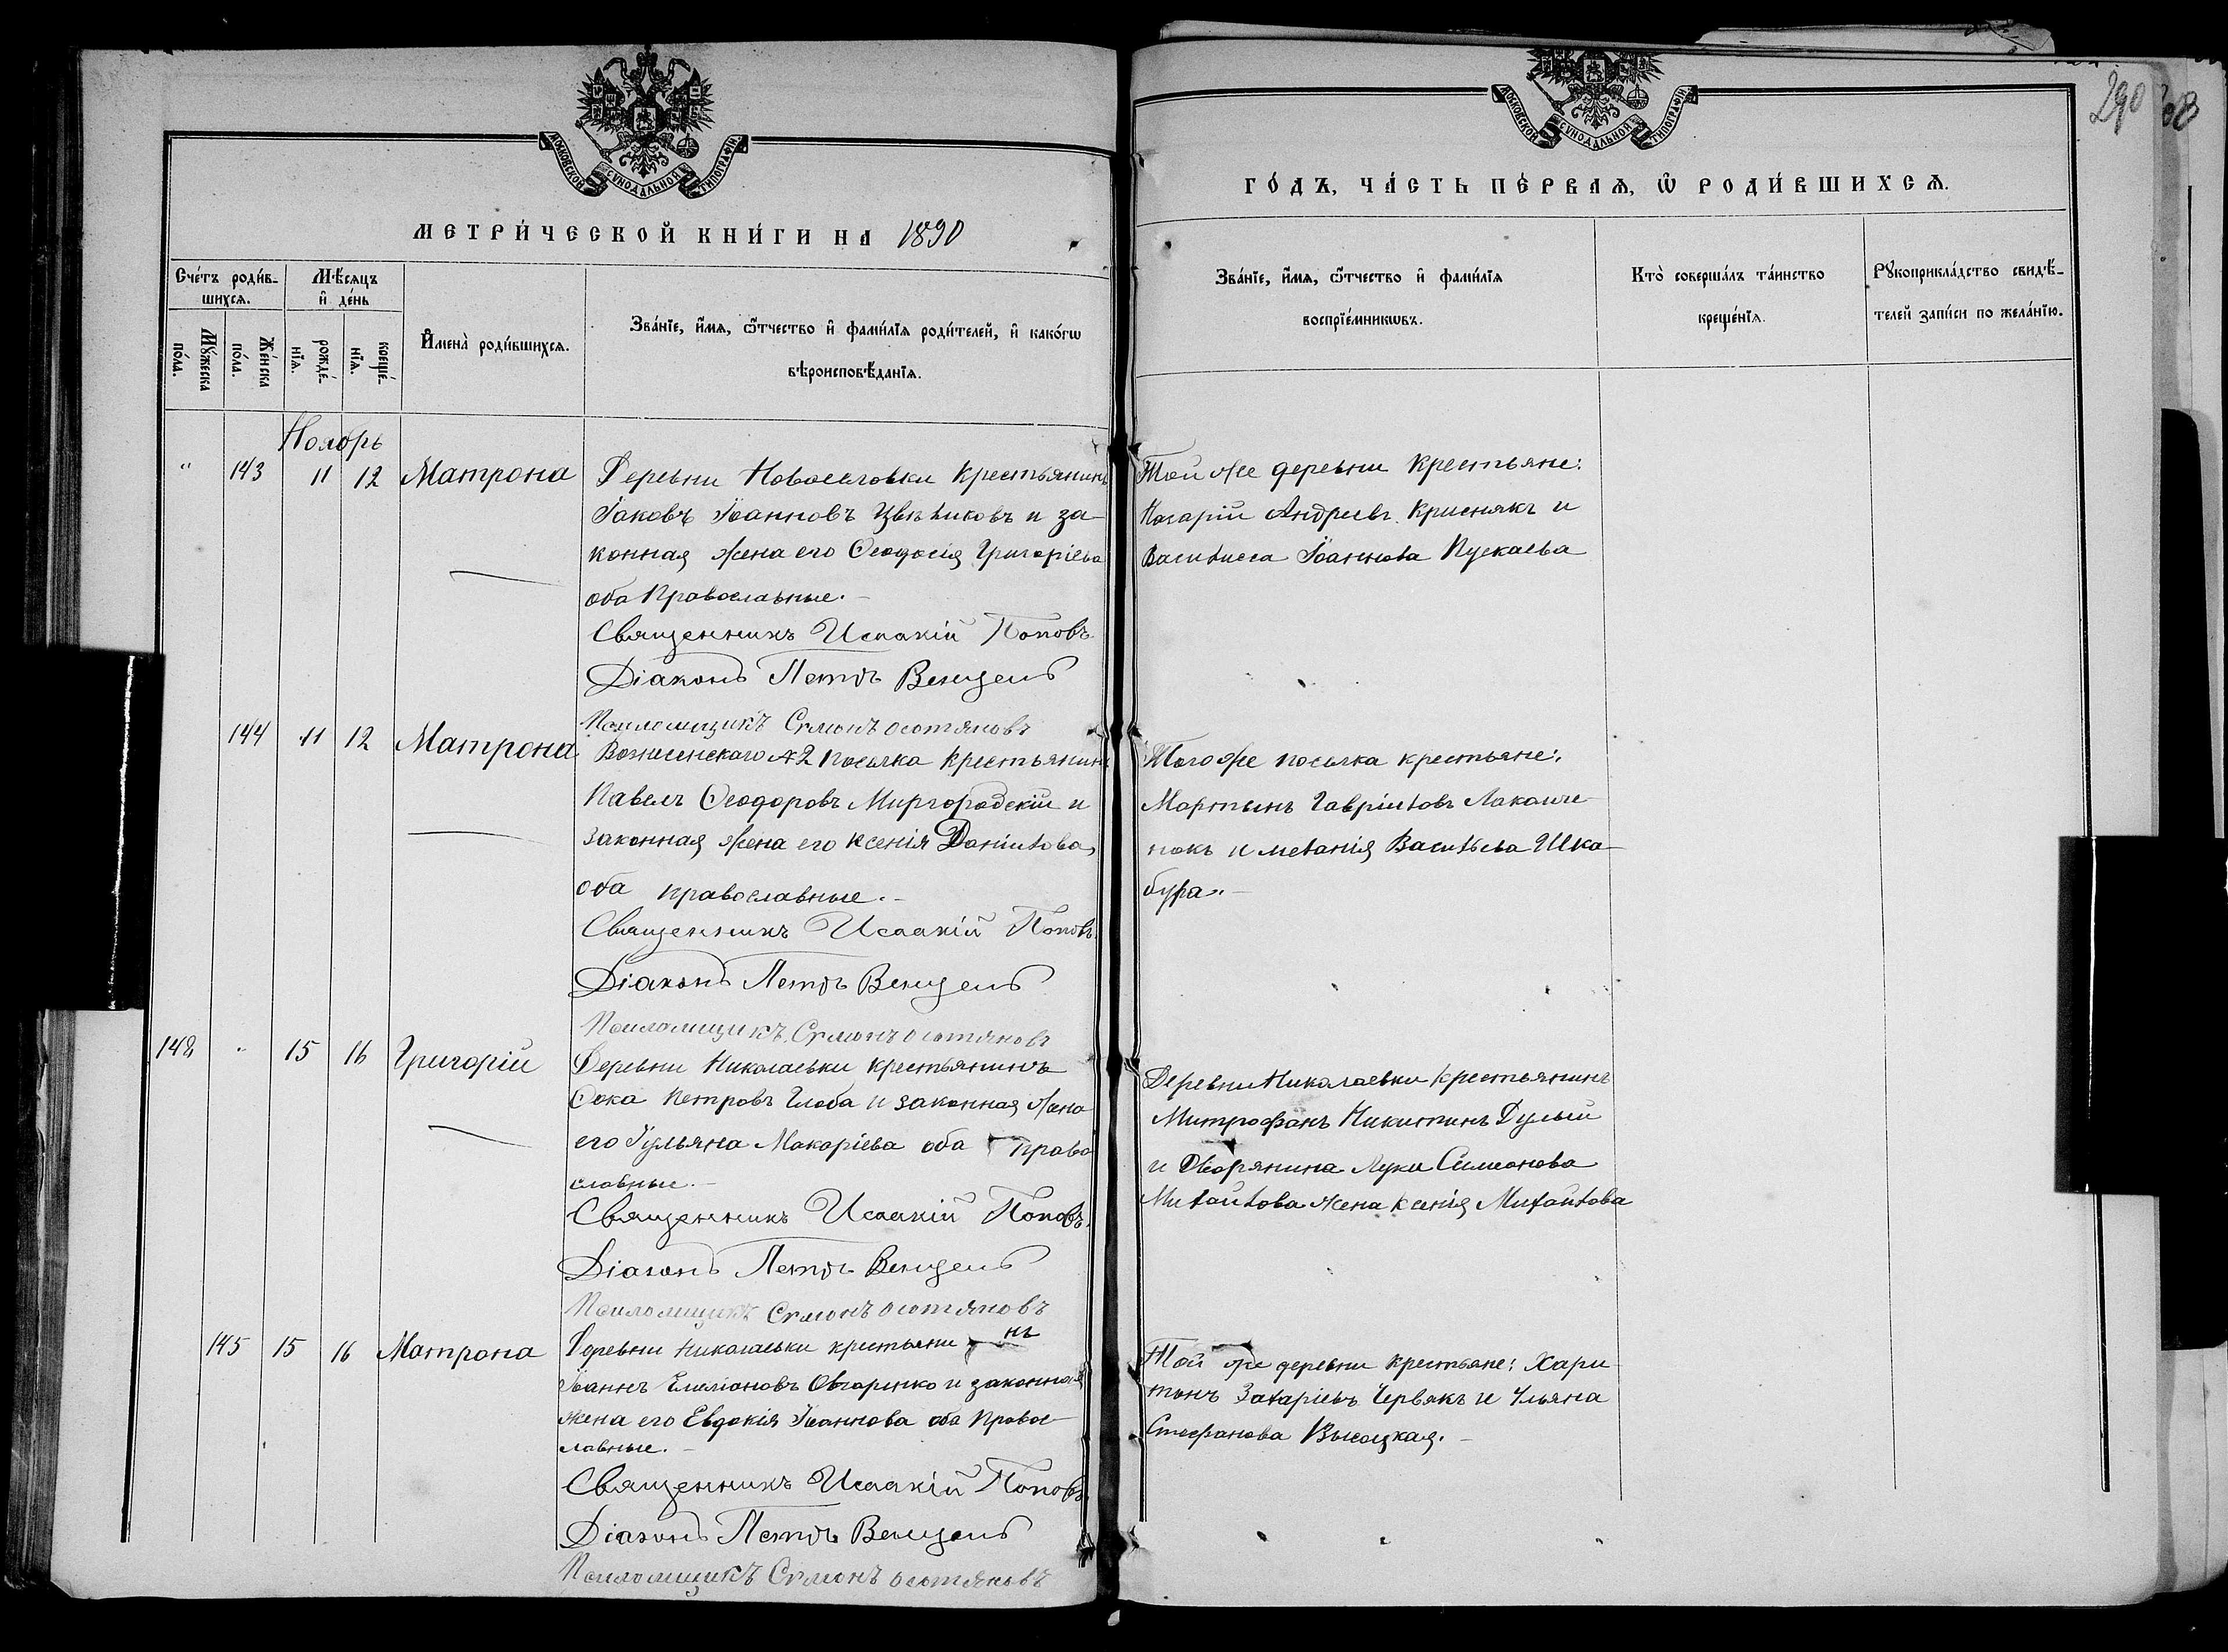 МОСКОВСКОЙ СѴНОДАЛЬНОЙ ТИПОГРАФІИ.
МЕТРИ́ЧЕСКОЙ КНИ́ГИ НА 1890
Сче́тъ роди́в-
шихсѧ.
Мѣ́сѧцъ
и҆ де́нь
Мꙋ́жеска
по́ла.
Же́нска
по́ла.
рожде́-
нїѧ.
креще́-
нїѧ.
И҆мена̀ роди́вшихсѧ.
Зва́нїе, и҆́мѧ, ѻ҆́тчество и҆ фами́лїѧ роди́телей, и҆ како́гѡ
вѣроисповѣ́данїѧ.
Ноябрь
" 143 11 12 Матрона
Деревни Новоселовки крестьянинъ
Іаковъ Іоанновъ и за-
конная жена его Ѳеодосія Григоріева
оба Православные.
Священникъ Исаакій Поповъ
Діаконъ Петръ Венцель
Псаломщикъ
144 11 12 Матрона
Вознесенскаго №2 поселка крестьянинъ
Павелъ Ѳеодоровъ Миргородскій и
законная жена его Ксенія Даніилова,
оба православные.
Священникъ Исаакій Поповъ
Діаконъ Петръ Венцель
Псаломщикъ
142 " 15 16 Григорій
Деревни Николаевки крестьянинъ
Ѳока Петровъ Глоба и законная жена
его Іульяна Макаріева оба право
славные.
Священникъ Исаакій Поповъ
Діаконъ Петръ Венцель
Псаломщикъ
145 15 16 Матрона
Деревни Николаевки крестьянинъ
Іоаннъ Емеліановъ Овчаренко и законная
жена его Евдокія Іоаннова оба Правос-
лавные.
Священникъ Исаакій Поповъ
Діаконъ Петръ Венцель
Псаломщикъ
290
МОСКОВСКОЙ СѴНОДАЛЬНОЙ ТИПОГРАФІИ.
ГО́ДЪ, ЧА́СТЬ ПЕ́РВАѦ, Ѽ РОДИ́ВШИХСѦ.
Зва́нїе, и҆́мѧ, ѻ҆́тчество и҆ фами́лїѧ
воспрїе́мникѡвъ.
Кто̀ соверша́лъ та́инство
креще́нїѧ.
Рꙋкоприкла́дство свидѣ́-
телей за́писи по жела́нїю.
Той же деревни крестьяне:
Назарій Андреевъ Криснякъ и
Василисса Іоаннова Пускаева
Того же поселка крестьяне:
Мартынъ Гавріиловъ
и Меланія Васильева Шка-
бура.
Деревни Николаевки крестьянинъ
Митрофанъ Никитинъ Дулый
и дворянина Луки Симеонова
Михайлова жена Ксенія Михайлова
Той же деревни крестьяне: Хари
тонъ Захаріевъ Червякъ и Ульяна
Стефанова Высоцкая.